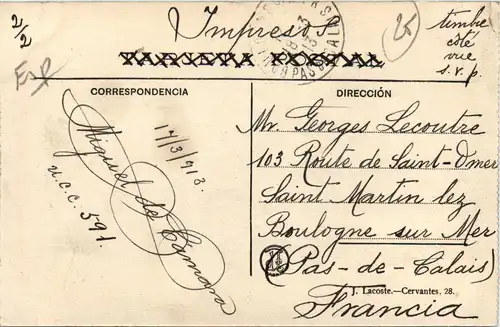 2/2
Impreso
25
timbre
côté
vue
s.v.p.
TARJETA POSTAL
Esp
CORRESPONDENCIA
DIRECCIÓN
17/3/913.
Miguel de Camara
u.c.c. 591.
Mr. Georges Lecoutre
103 Route de Saint-Omer
Saint Martin lez
Boulogne sur Mer
(Pas-de-Calais)
J. Lacoste.—Cervantes, 28.
Francia